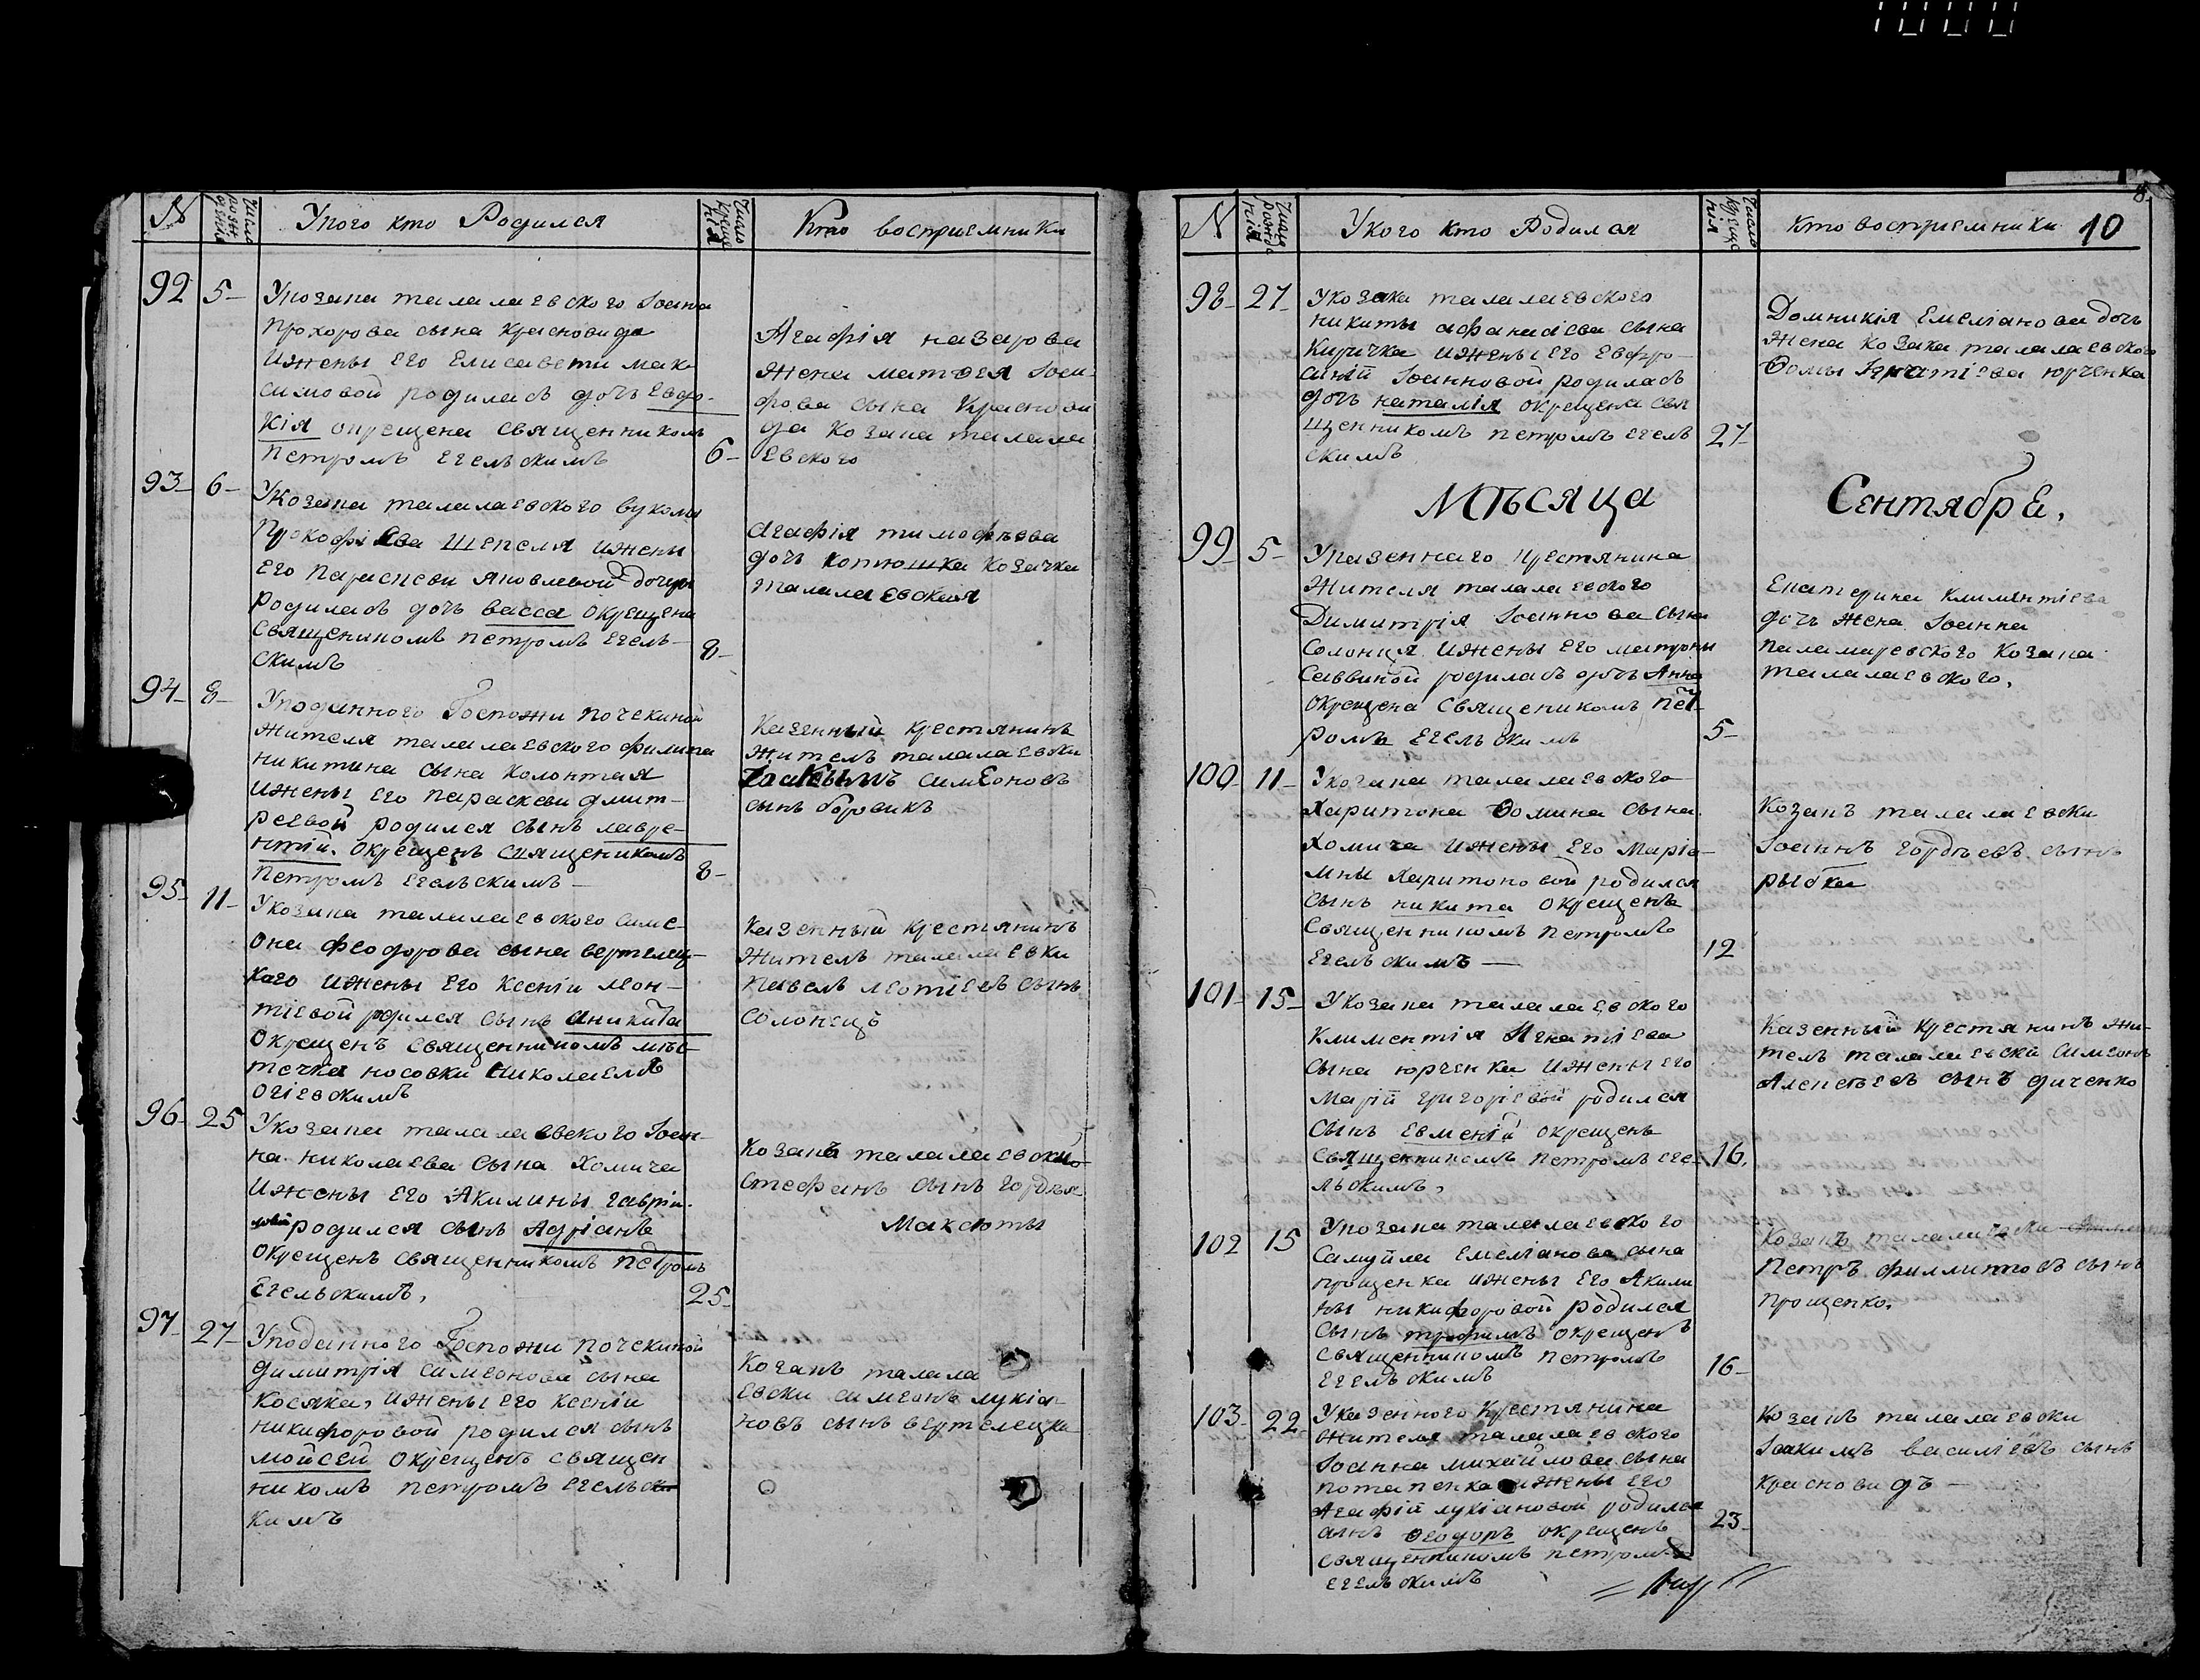 N
Число рожденія
Укого кто Родился
Число крещенія
Кто восприемники
92
5
Укозака талалаевского Іоанна
Прохорова сына Красновида
ижены Его Елисавети мак
симовой родиласъ дочъ Евдо-
кія окрещена священникомъ
Петромъ Егельскимъ
6
Агафія назарова
жена матθея Іоси-
фова сына Краснови
да козака талала
Евского
93
6
Укозака талалаевского вуколы
Прокофіева Шепеля ижены
Его Параскеви Яковлевой дочери
родиласъ дочъ васса окрещена
священикомъ петромъ Егель-
скимъ
8
Агафія тимофѣева
дочъ котюшка козачка
талалаевская
94
8
Уподанного Госпожи почекиной
жителя талалаевского филипа
никитина сына колонтая
ижены Его параскеви дмит-
реевой родился сынъ лавре-
нтій. окрещенъ священикомъ
Петромъ Егелъскимъ
8
Казенный крестянинъ
жителъ талалаевки
симеоновъ
сынъ боровикъ
95
11
Укозака талалаевского симе-
она феодорова сына вертелец-
кого ижены Его ксеніи леон-
тіевой родился сынъ аникита
окрещенъ священникомъ мѣс-
течка носовки николаемъ
огіевскимъ
Казенный крестянинъ
жителъ талалаевки
павелъ леотіевъ сынъ
солонецъ
96
25
Укозака талалаевского Іоан-
на николаева сына Хомича
ижены Его Акилины гаврии-
ловой родился сынъ Адріанъ
окрещенъ священникомъ петромъ
Егельскимъ,
25
Козакъ талалаевский
Стефанъ сынъ гордѣя
Максюты
97
27
Уподанного Госпожи почекиной
димитрія симеонова сына
Косяка, ижены Его ксеніи
никифоровой родился сынъ
мойсей окрещенъ священ
никомъ петромъ Егельс
кимъ
Козакъ талала
Евски симеонъ лукіа-
новъ сынъ вертелецки
N
Число рожденія
Укого кто Родился
Число крещенія
кто восприемники
10
98
27
Укозака талалаевского
никиты афанасіева сына
Киричка ижены Его Евфро-
синій Іоанновой родиласъ
дочъ наталія окрещена свя
щенникомъ петромъ Егелъ
скимъ
27
Домникія Емеліанова дочъ
жена козака талалаевского
θомы Ігнатіева юрченка
Мѣсяца
Сентября,
99
5
Указенного крестянина
жителя талалаевского
Димитрія Іоаннова сына
Солонця ижены Его матроны
Саввиной родиласъ дочъ Анна
окрещена священикомъ Пет-
ромъ Егелъскимъ
5
Екатерина климентіева
дочъ жена Іоанна
паламаревского козака
талалаевского.
100
11
Укозака талалаевского
Харитона θомина сына
Хомича ижены Его Маріа-
мны Харитоновой родился
сынъ никита окрещенъ
священникомъ петромъ
Егелъскимъ
12
Козакъ талалаевски
Іоаннъ гордѣевъ сынъ
рыбка
101
15
Укозака талалаевского
Климентія Игнатіева
сына юрченка ижены Его
Марій григоріевой родился
сынъ Евменій окрещенъ
священникомъ петромъ Еге-
льскимъ,
16.
Казенный крестянинъ жи-
телъ талалаевски симеонъ
Алексѣевъ сынъ диченко
102
15
Укозака талалаевского
Самуйла Емеліанова сына
прощенка ижены Его Акили
ны никифоровой родился
сынъ трофимъ окрещенъ
священникомъ петромъ
Егелъскимъ
16
Козакъ талалаевски
Петръ филлиповъ сынъ
прощенко.
103
22
Указенного Крестянина
жителя талалаевского
Іоанна михайлова сына
потапенка ижены Его
Агафій лукіановой родился
сынъ θеодоръ окрещенъ
священникомъ петромъ
Егелъскимъ
23
Козакъ талалаевски
Іоакимъ василіевъ сынъ
красновидъ